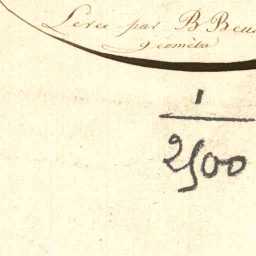 Levée par B Beu
géomètre
1
2500